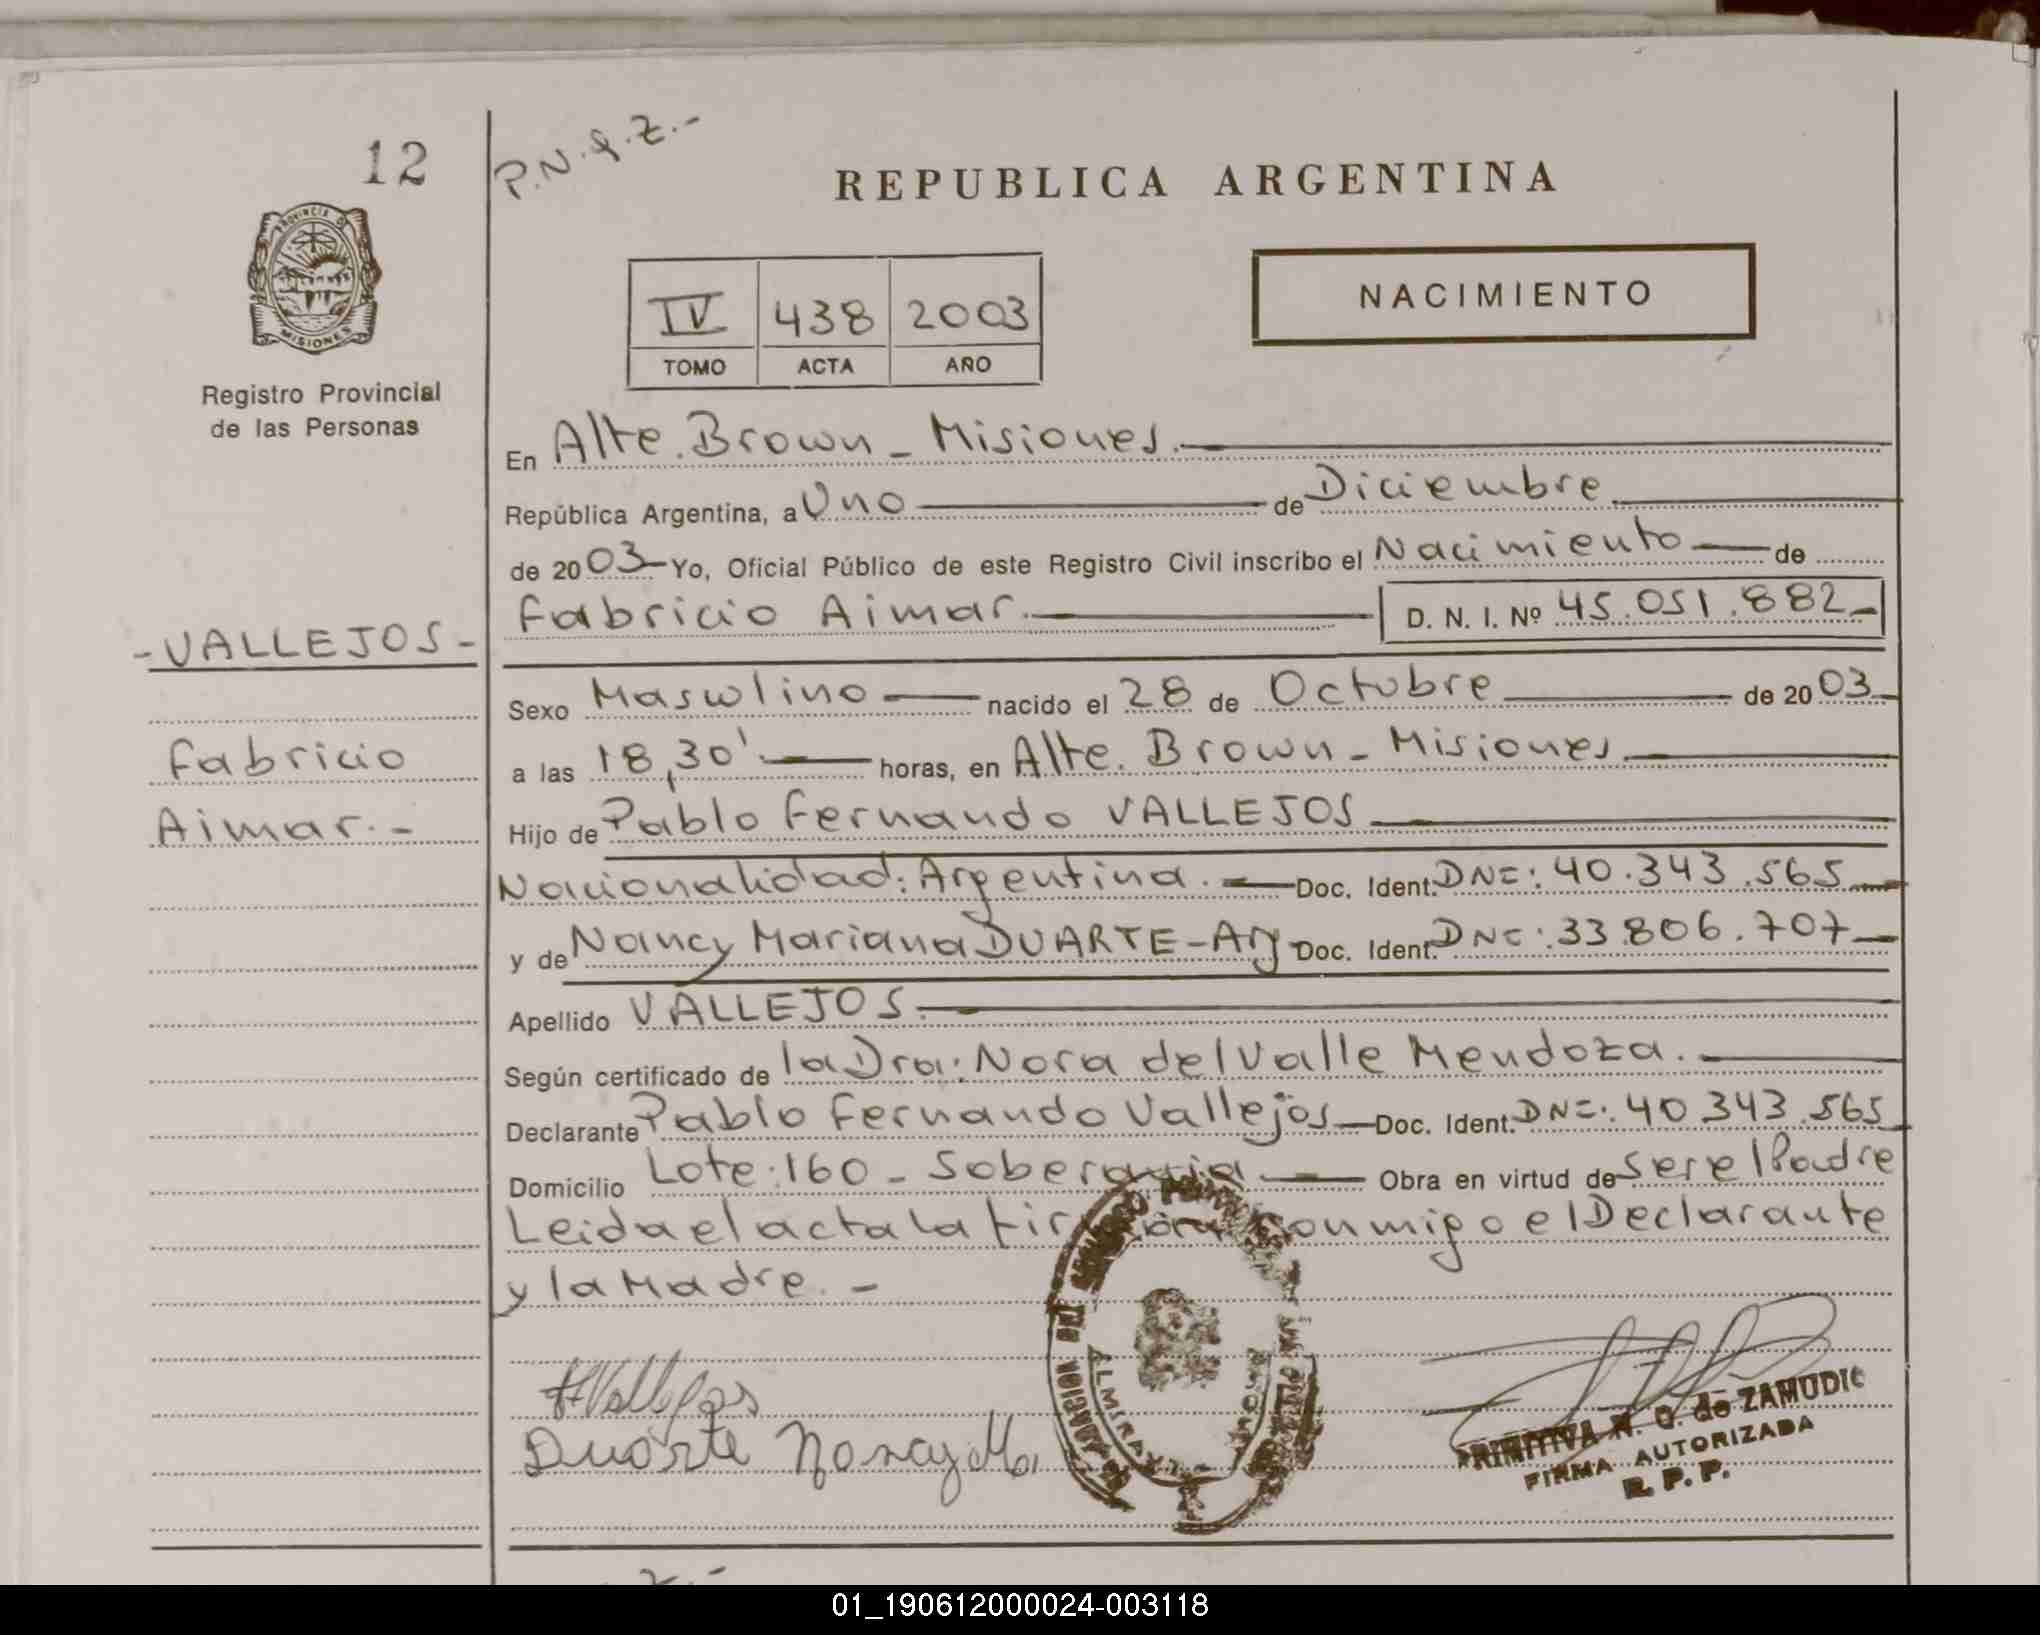 12
P.N.G.Z.-
REPUBLICA ARGENTINA
PROVINCIA DE
MISIONES
Registro Provincial
de las Personas
IV 438 2003
TOMO ACTA AÑO
NACIMIENTO
En Alte. Brown - Misiones.
República Argentina, a Uno de Diciembre
de 2003 Yo, Oficial Público de este Registro Civil inscribo el Nacimiento de
Fabricio Aimar. D. N. I. Nº 45.051.882
- VALLEJOS -
Fabricio
Aimar.-
Sexo Masculino nacido el 28 de Octubre de 2003
a las 18,30' horas, en Alte. Brown - Misiones
Hijo de Pablo Fernando VALLEJOS
Nacionalidad: Argentina. Doc. Ident. DNI: 40.343.565
y de Nancy Mariana DUARTE - Arg Doc. Ident. DNI: 33.806.707
Apellido VALLEJOS.
Según certificado de la Dra: Nora del Valle Mendoza.
Declarante Pablo Fernando Vallejos Doc. Ident. DNI: 40.343.565
Domicilio Lote: 160 - Soberania Obra en virtud de ser el Padre
Leida el acta la firman conmigo el Declarante
y la Madre. -
Vallejos
Duarte Nancy M.
ALMIRANTE BROWN
PRIMITIVA N. G. de ZAMUDIO
FIRMA AUTORIZADA
R. P. P.
01_190612000024-003118